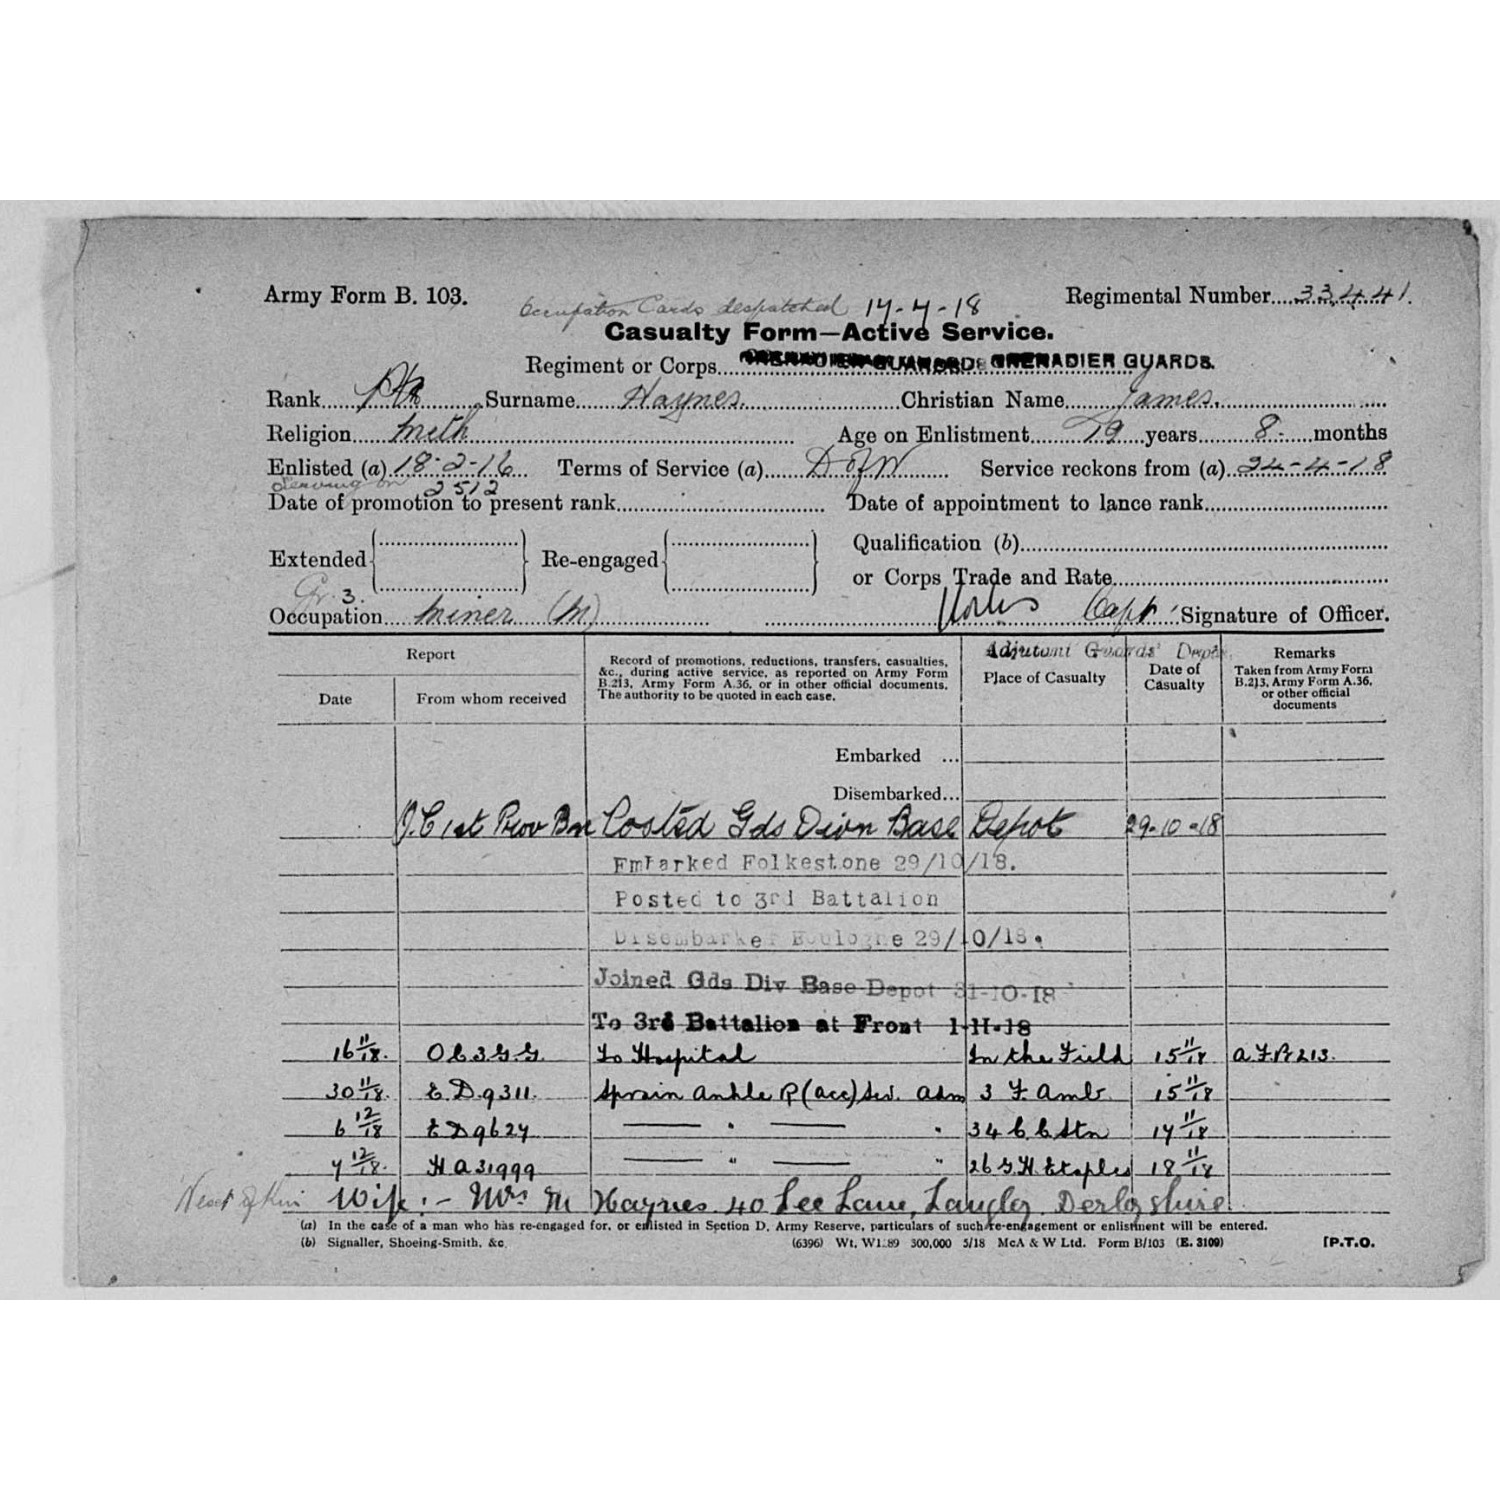 Army Form B. 103.
Occupation Cards despatched 17-4-18
Regimental Number....33441.
Casualty Form—Active Service.
Regiment or Corps GRENADIER GUARDS.
Rank Pte Surname Haynes. Christian Name James.
Religion Meth Age on Enlistment 19 years 8 months
Enlisted (a) 18-2-16 Terms of Service (a) D of W Service reckons from (a) 24-4-18
2512
Date of promotion to present rank Date of appointment to lance rank
Extended Re-engaged Qualification (b)
or Corps Trade and Rate
Gr. 3.
Occupation Miner (M) Capt Signature of Officer.
Adjutant Guards' Depot.
Report
Date
From whom received
Record of promotions, reductions, transfers, casualties,
&c., during active service, as reported on Army Form
B.213, Army Form A.36, or in other official documents.
The authority to be quoted in each case.
Place of Casualty
Date of
Casualty
Remarks
Taken from Army Form
B.213, Army Form A.36,
or other official
documents
Embarked ...
Disembarked...
O.C 1st Prov Bn Posted Gds Divn Base Depot 29-10-18
Embarked Folkestone 29/10/18.
Posted to 3rd Battalion
Disembarked Boulogne 29/10/18.
Joined Gds Div Base Depot 31-10-18
To 3rd Battalion at Front 1-11-18
16 11/18. O C 3 G.G. To Hospital In the Field 15 11/18 A.F.B 213.
30 11/18. E.D.9311. Sprain Ankle R (acc) Sev. adm 3 F. Amb. 15 11/18
6 12/18 E D 9627 —— " —— " 34 C.C. Stn 17 11/18
7 12/18. H A 31999 —— " —— " 26 G.H. Etaples 18 11/18
Next of Kin Wife :- Mrs M Haynes 40 Lee Lane, Langley. Derbyshire
(a) In the case of a man who has re-engaged for, or enlisted in Section D, Army Reserve, particulars of such re-engagement or enlistment will be entered.
(b) Signaller, Shoeing-Smith, &c. (6396) Wt. W1.89 300,000 5/18 McA & W Ltd. Form B/103 (E. 3109) [P.T.O.